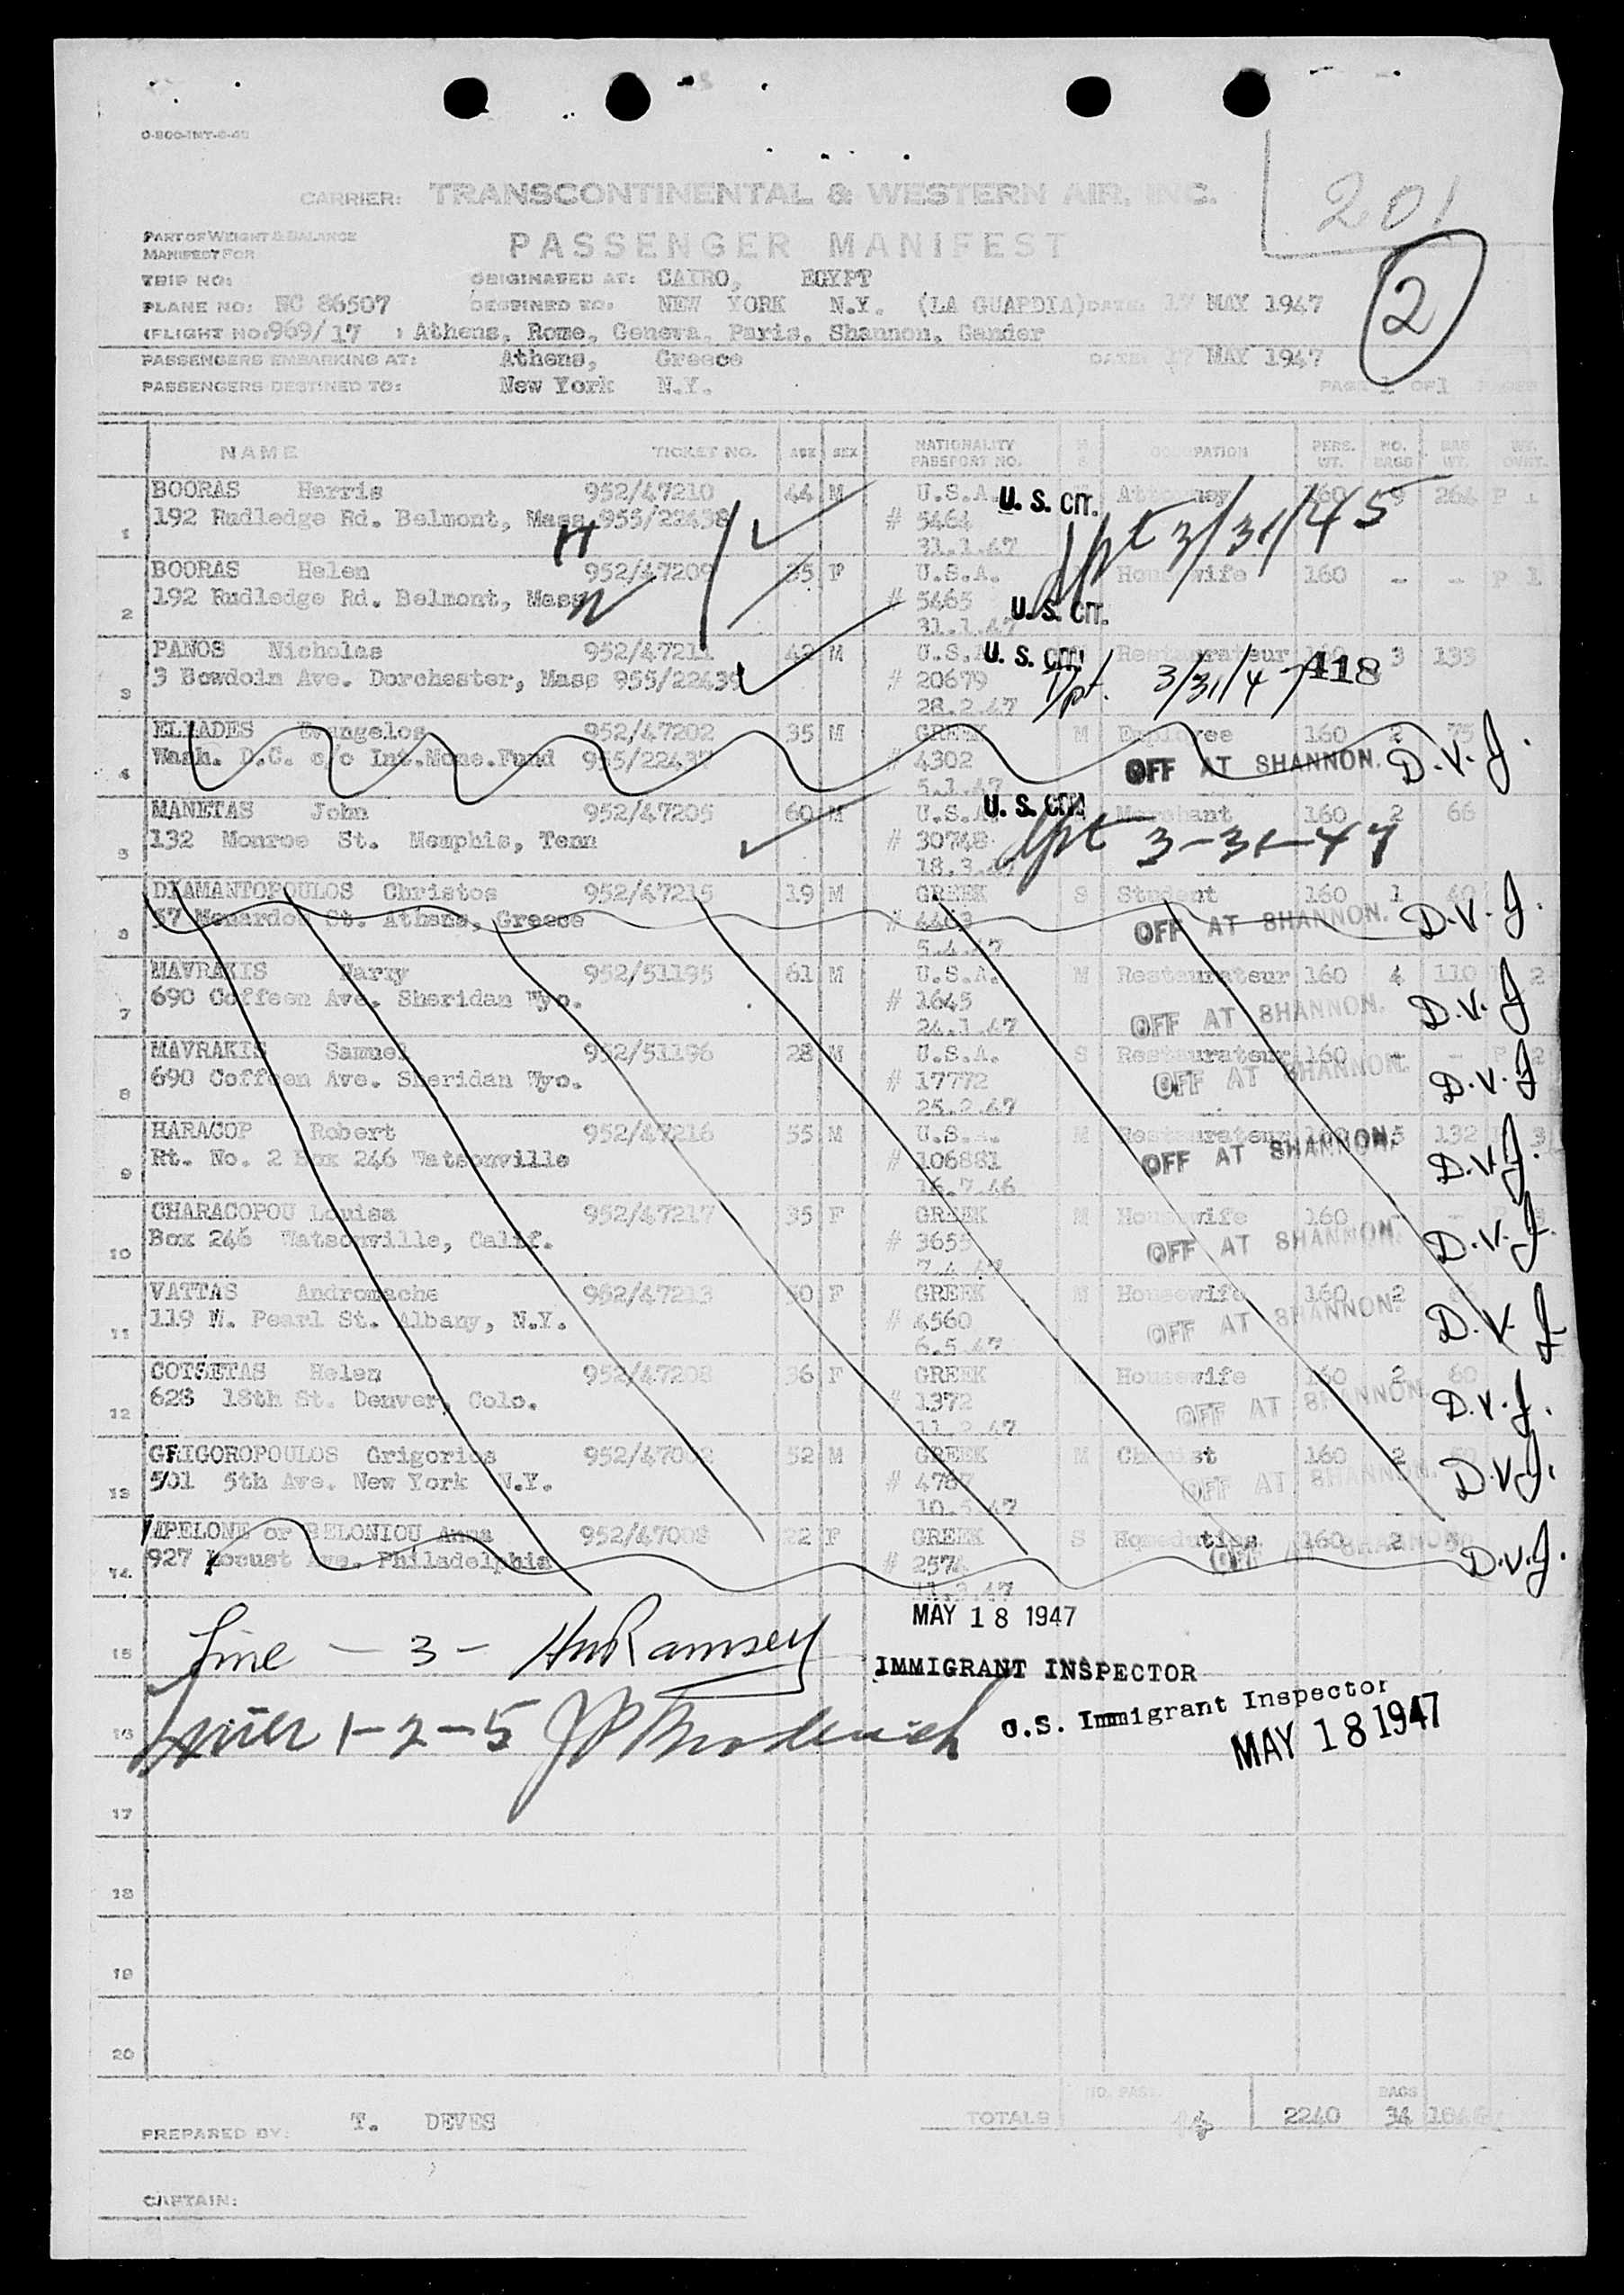 0-800-INT-6-45
201
CARRIER: TRANSCONTINENTAL & WESTERN AIR, INC.
PART OF WEIGHT & BALANCE
MANIFEST FOR
PASSENGER MANIFEST
2
TRIP NO: ORIGINATED AT: CAIRO, EGYPT
PLANE NO: NC 86507 DESTINED TO: NEW YORK N.Y. (LA GUARDIA) DATE: 17 MAY 1947
(FLIGHT NO: 969/17 ) Athens, Rome, Geneva, Paris, Shannon, Gander
PASSENGERS EMBARKING AT: Athens, Greece DATE: 17 MAY 1947
PASSENGERS DESTINED TO: New York N.Y. PAGE 1 OF 1 PAGES
NAME TICKET NO. AGE SEX NATIONALITY PASSPORT NO. M S OCCUPATION PERS. WT. NO. BAGS BAG WT. WT. OVHT.
BOORAS Harris 952/47210 44 M U.S.A. U. S. CIT. Attorney 160 9 264 P 1
1 192 Rudledge Rd. Belmont, Mass 955/22438 # 5464
31.1.47 3/31/45
BOORAS Helen 952/47209 35 F U.S.A. Housewife 160 - - P 1
2 192 Rudledge Rd. Belmont, Mass # 5465 U. S. CIT.
31.1.47
PANOS Nicholas 952/47211 42 M U.S.A. U. S. CIT. Restaurateur 160 3 133
3 3 Bowdoin Ave. Dorchester, Mass 955/22439 # 20679 3/31/47 418
28.2.47
ELIADES Evangelos 952/47202 35 M GREEK M Employee 160 2 75
4 Wash. D.C. c/o Int.Mone.Fund 955/22437 # 4302 OFF AT SHANNON. D.V.J.
5.1.47
MANETAS John 952/47205 60 M U.S.A. U. S. CIT. Merchant 160 2 66
5 132 Monroe St. Memphis, Tenn # 30748 3-31-47
18.3.47
DIAMANTOPOULOS Christos 952/47215 19 M GREEK S Student 160 1 40
6 57 Menardou St. Athens, Greece # 4403 OFF AT SHANNON. D.V.J.
5.4.47
MAVRAKIS Harry 952/51195 61 M U.S.A. M Restaurateur 160 4 110 2
7 690 Coffeen Ave. Sheridan Wyo. # 1645 OFF AT SHANNON. D.V.J
24.1.47
MAVRAKIS Samuel 952/51196 28 M U.S.A. S Restaurateur 160 - - P 2
8 690 Coffeen Ave. Sheridan Wyo. # 17772 OFF AT SHANNON. D.V.J
25.2.47
HARACOP Robert 952/47216 55 M U.S.A. M Restaurateur 160 5 132 3
9 Rt. No. 2 Box 246 Watsonville # 106881 OFF AT SHANNON. D.V.J.
16.7.46
CHARACOPOU Louisa 952/47217 35 F GREEK M Housewife 160 - - P 3
10 Box 246 Watsonville, Calif. # 3655 OFF AT SHANNON. D.V.J.
7.4.47
VATTAS Andromache 952/47213 50 F GREEK M Housewife 160 2
11 119 N. Pearl St. Albany, N.Y. # 4560 OFF AT SHANNON. D.V.J
6.5.47
COTSETAS Helen 952/47208 36 F GREEK Housewife 160 2 60
12 628 18th St. Denver, Colo. # 1372 OFF AT SHANNON D.V.J.
11.2.47
GRIGOROPOULOS Grigorios 952/47002 52 M GREEK M Chemist 160 2 50
13 501 5th Ave. New York N.Y. # 4787 OFF AT SHANNON. D.V.J.
10.5.47
MPELONE or BELONIOU Anna 952/47008 22 F GREEK S Homeduties 160 2 50
14 927 Locust Ave. Philadelphia # 2574 OFF AT SHANNON D.V.J.
11.3.47
MAY 18 1947
15 Line - 3 - HWRamsey IMMIGRANT INSPECTOR
16 1-2-5 U.S. Immigrant Inspector
MAY 18 1947
17
18
19
20
NO. PASS. BAGS
TOTALS 14 2240 34
PREPARED BY: T. DEVES
CAPTAIN: